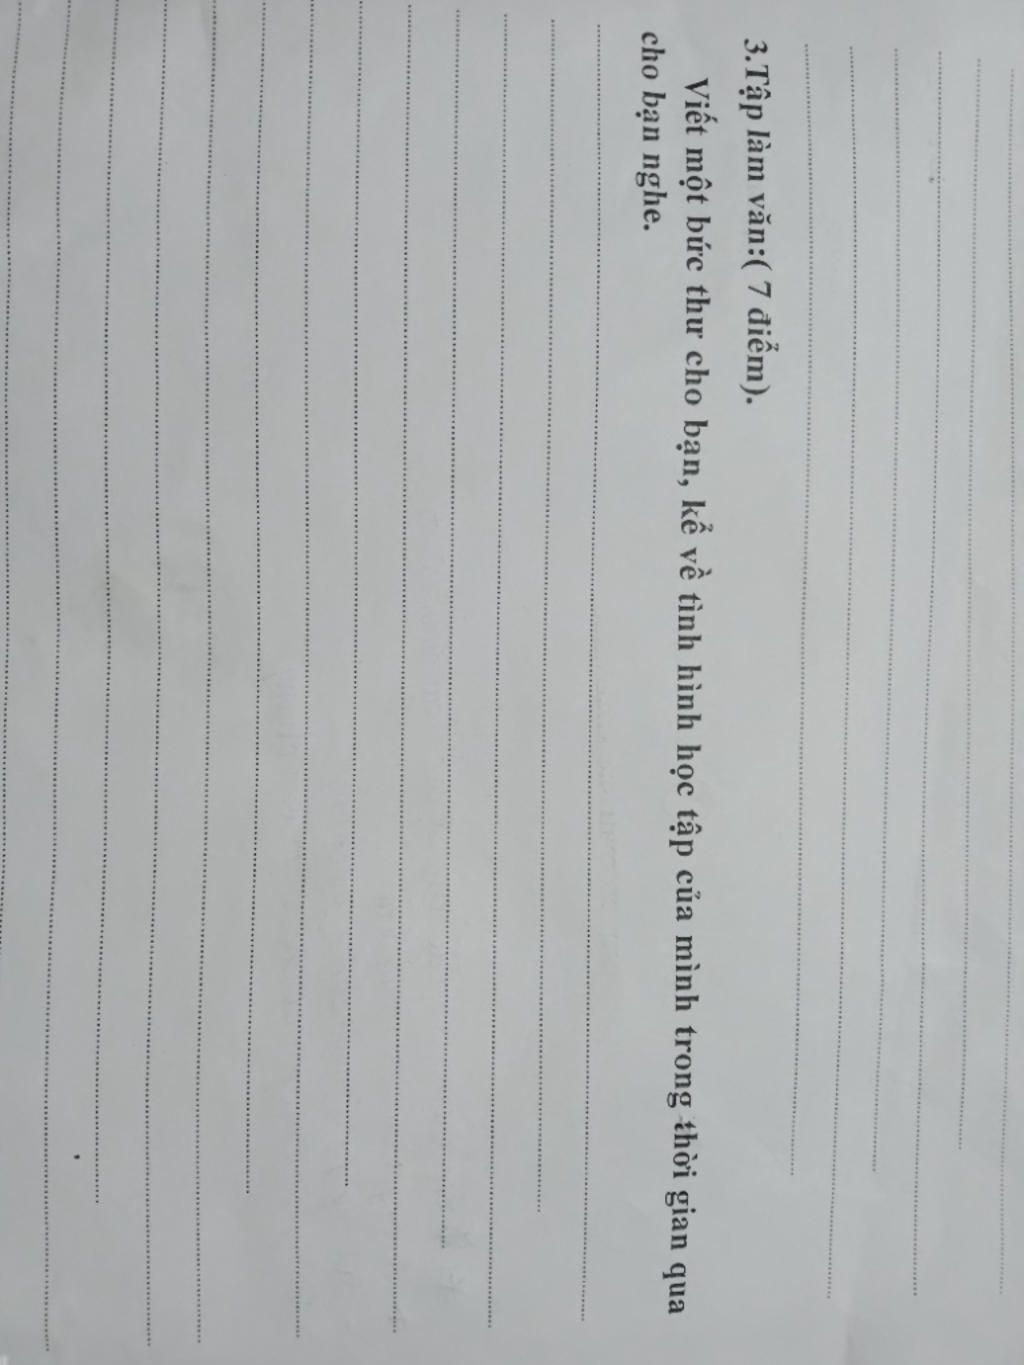 3.Tập làm văn:( 7 điểm).
Viết một bức thư cho bạn, kể về tình hình học tập của mình trong thời gian qua
cho bạn nghe.